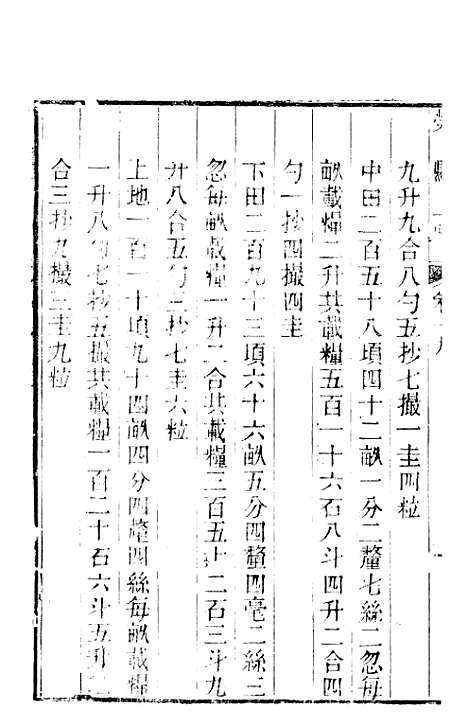 縣志 卷
九升九合八勺五抄七撮一圭四粒
中田二百五十八頃四十二畝一分二釐七絲二忽每
畝載糧二升共載糧五百一十六石八斗四升二合四
勺一抄四撮四圭
下田二百九十三頃六十六畝五分四釐四毫二絲三
忽每畝載糧一升二合共載糧三百五十二石三斗九
升八合五勺三抄七圭六粒
上地一百一十頃九十四畝四分四釐四絲每畝載糧
一升八勺七抄五撮共載糧一百二十石六斗五升二
合三抄九撮三圭九粒